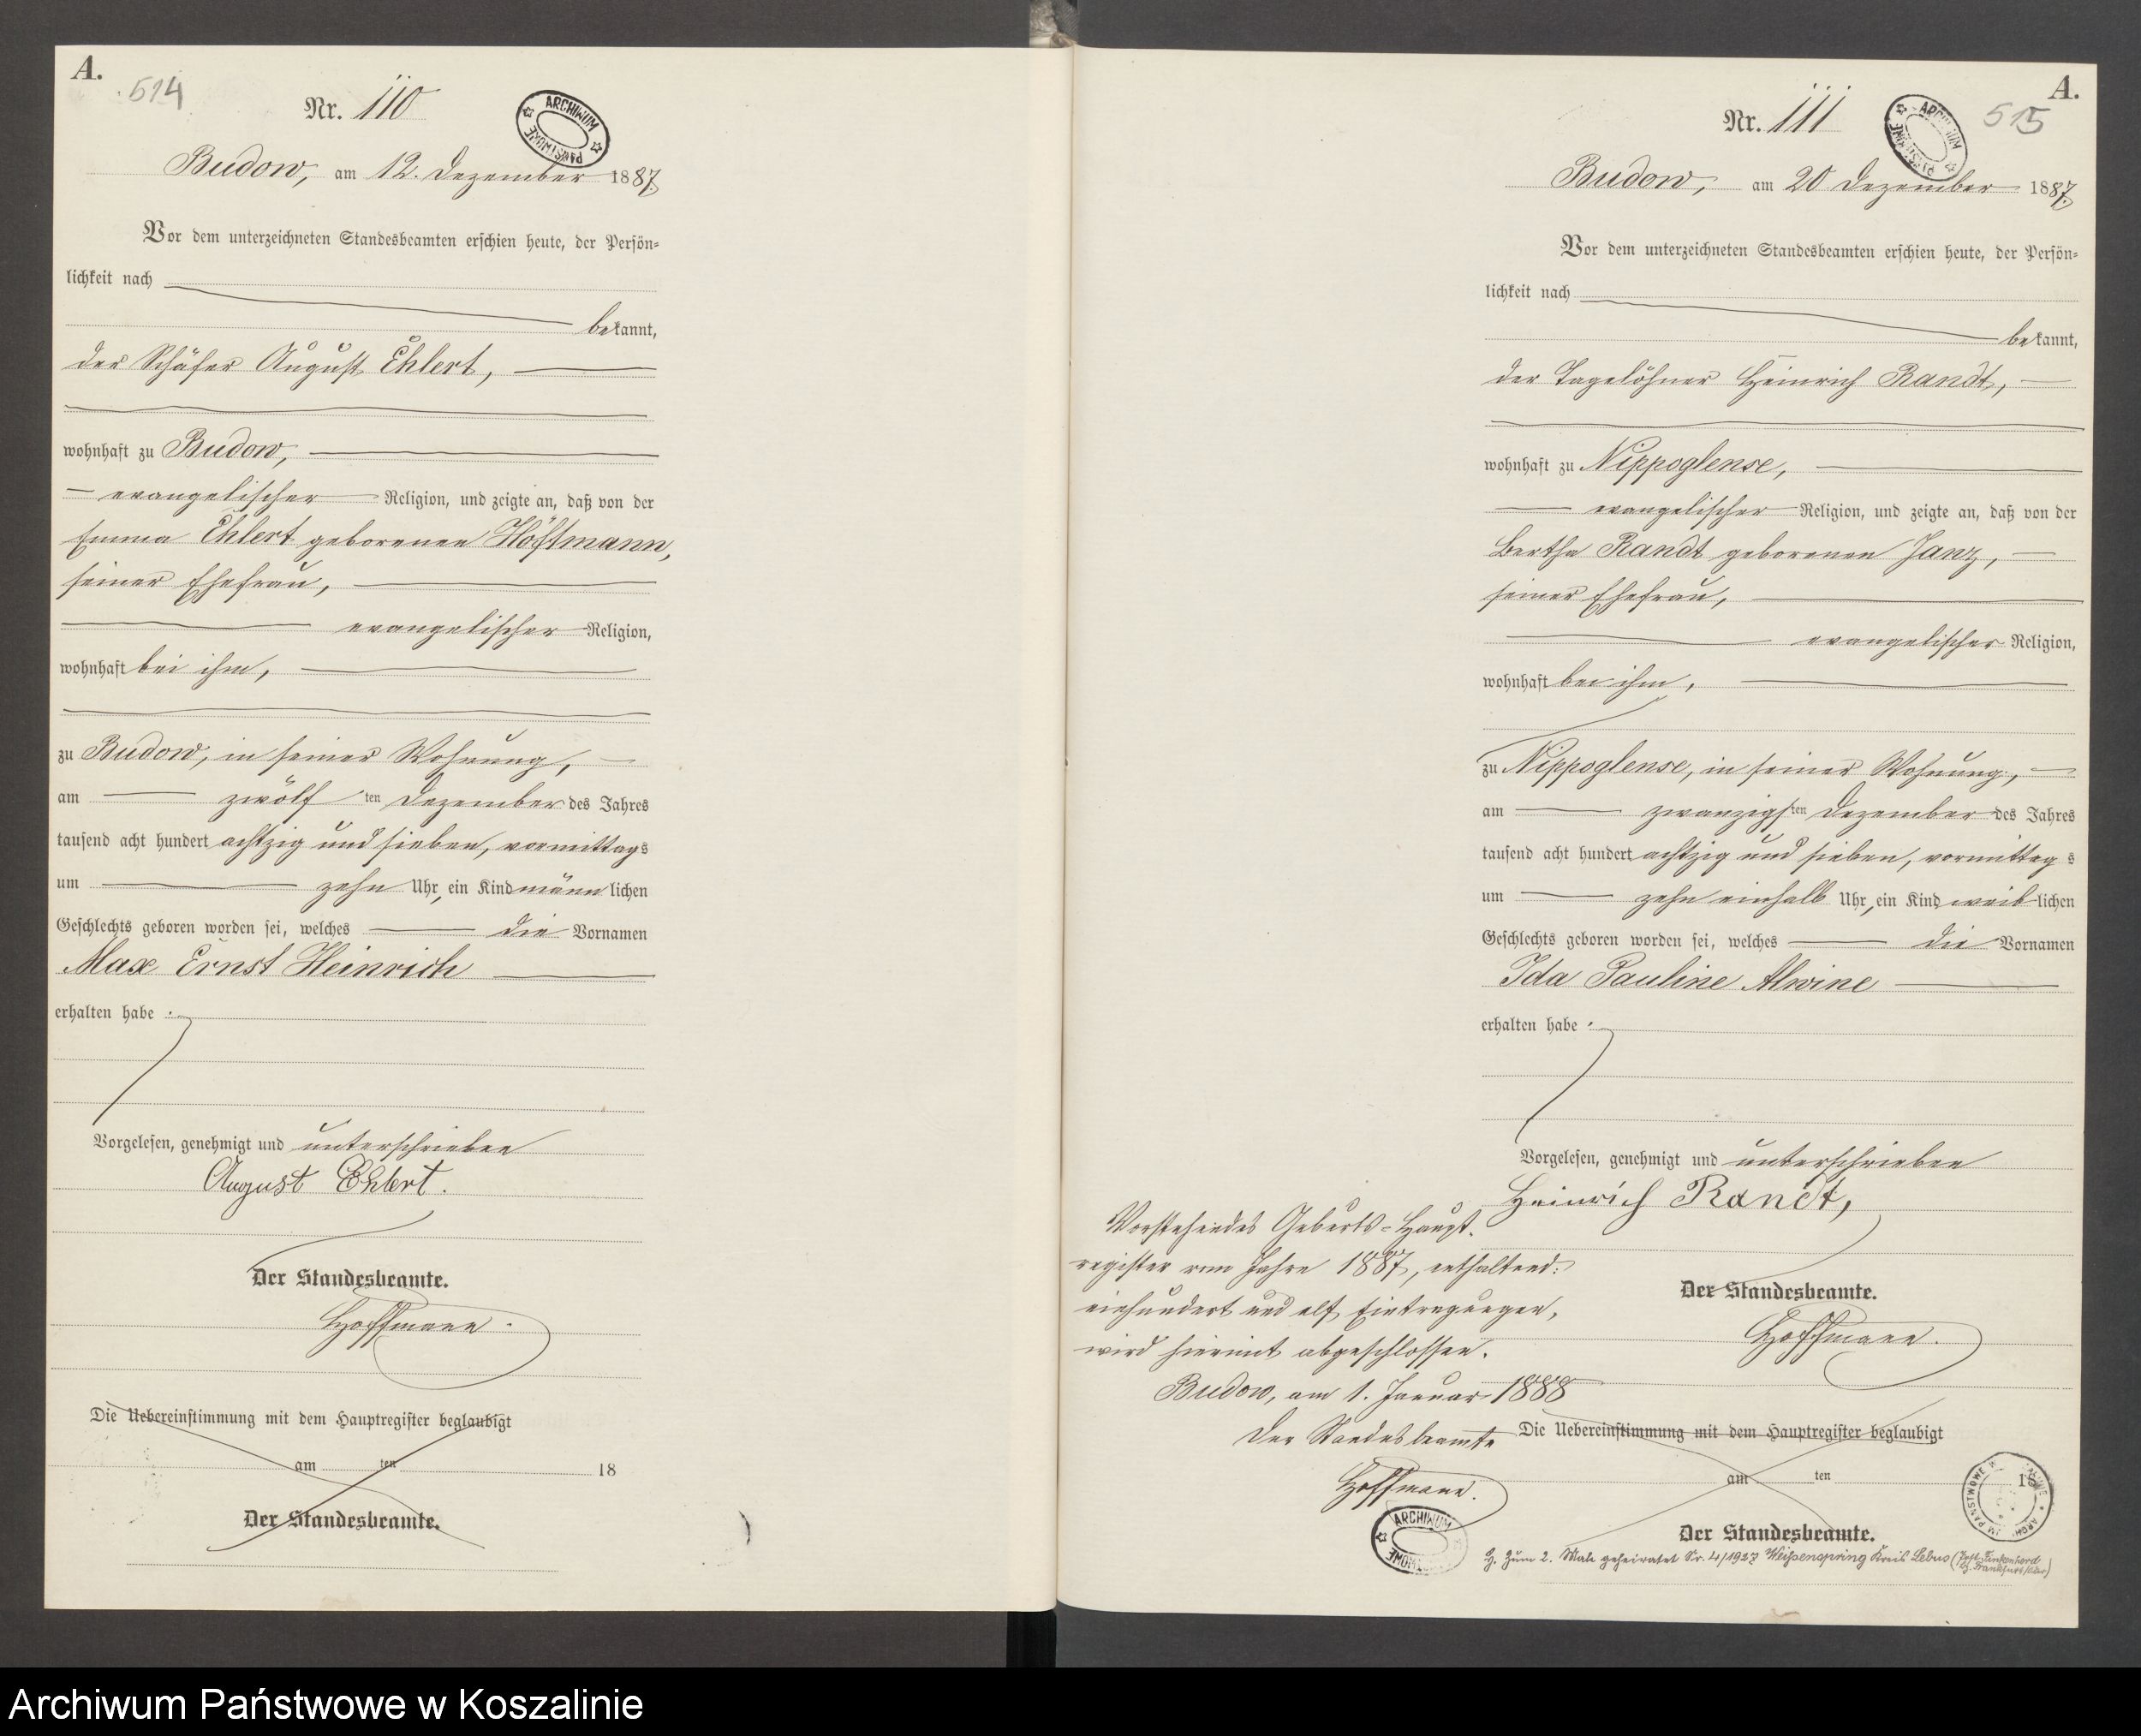 A.
514
Nr. 110
ARCHIWUM PAŃSTWOWE
Budow, am 12. Dezember 1887.
Vor dem unterzeichneten Standesbeamten erschien heute, der Persön-
lichkeit nach
bekannt,
der Schäfer August Ehlert,
wohnhaft zu Budow,
evangelischer Religion, und zeigte an, daß von der
Emma Ehlert geborenen Höftmann,
seiner Ehefrau,
evangelischer Religion,
wohnhaft bei ihm,
zu Budow, in seiner Wohnung,
am zwölf ten Dezember des Jahres
tausend acht hundert achtzig und sieben, vormittags
um zehn Uhr, ein Kind männlichen
Geschlechts geboren worden sei, welches die Vornamen
Max Ernst Heinrich
erhalten habe.
Vorgelesen, genehmigt und unterschrieben
August Ehlert.
Der Standesbeamte.
Hoffmann.
Die Uebereinstimmung mit dem Hauptregister beglaubigt
am ten 18
Der Standesbeamte.
A.
515
Nr. 111
Budow, am 20 Dezember 1887.
Vor dem unterzeichneten Standesbeamten erschien heute, der Persön-
lichkeit nach
bekannt,
der Tagelöhner Heinrich Randt,
wohnhaft zu Nippoglense,
evangelischer Religion, und zeigte an, daß von der
Bertha Randt geborenen Janz,
seiner Ehefrau,
evangelischer Religion,
wohnhaft bei ihm,
zu Nippoglense, in seiner Wohnung,
am zwanzigsten Dezember des Jahres
tausend acht hundert achtzig und sieben, vormittags
um zehn einhalb Uhr, ein Kind weiblichen
Geschlechts geboren worden sei, welches die Vornamen
Ida Pauline Alwine
erhalten habe.
Vorgelesen, genehmigt und unterschrieben
Heinrich Randt,
Der Standesbeamte.
Hoffmann.
Vorstehendes Geburts-Haupt-
register vom Jahre 1887, enthaltend:
einhundert und elf Eintragungen,
wird hiermit abgeschlossen.
Budow, am 1. Januar 1888
Der Standesbeamte
Hoffmann.
ARCHIWUM
Die Uebereinstimmung mit dem Hauptregister beglaubigt
am ten 18
Der Standesbeamte.
H. Zum 2. Male geheiratet Nr. 4/1927 Weißenspring Kreis Lebus (Post Finkenherd
Frankfurt/Oder)
Archiwum Państwowe w Koszalinie